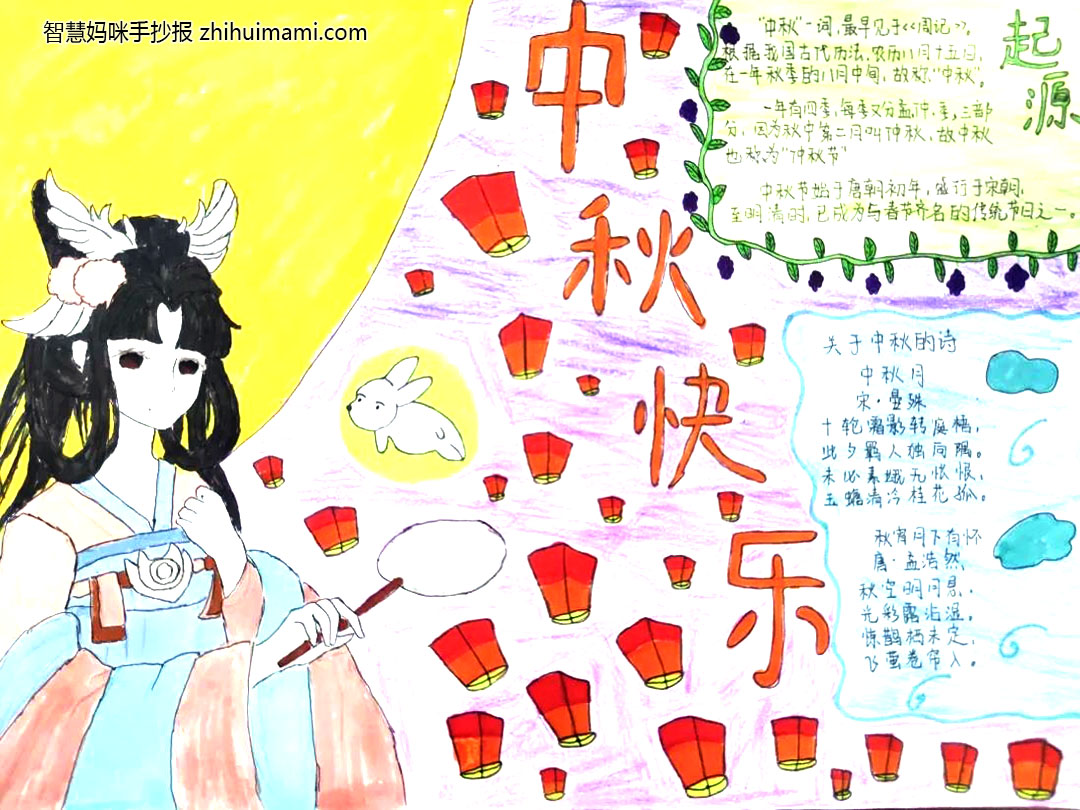 智慧妈咪手抄报 zhihuimami.com
中秋快乐
起源
"中秋"一词,最早见于<<周记>>。
根据我国古代历法,农历八月十五日,
在一年秋季的八月中旬,故称"中秋"。
一年有四季,每季又分孟,仲,季,三部
分,因为秋中第二月叫仲秋,故中秋
也称为"仲秋节"
中秋节始于唐朝初年,盛行于宋朝,
至明清时,已成为与春节齐名的传统节日之一。
关于中秋的诗
中秋月
宋·晏殊
十轮霜影转庭梧,
此夕羁人独向隅。
未必素娥无怅恨,
玉蟾清冷桂花孤。
秋宵月下有怀
唐·孟浩然
秋空明月悬,
光彩露沾湿。
惊鹊栖未定,
飞萤卷帘入。